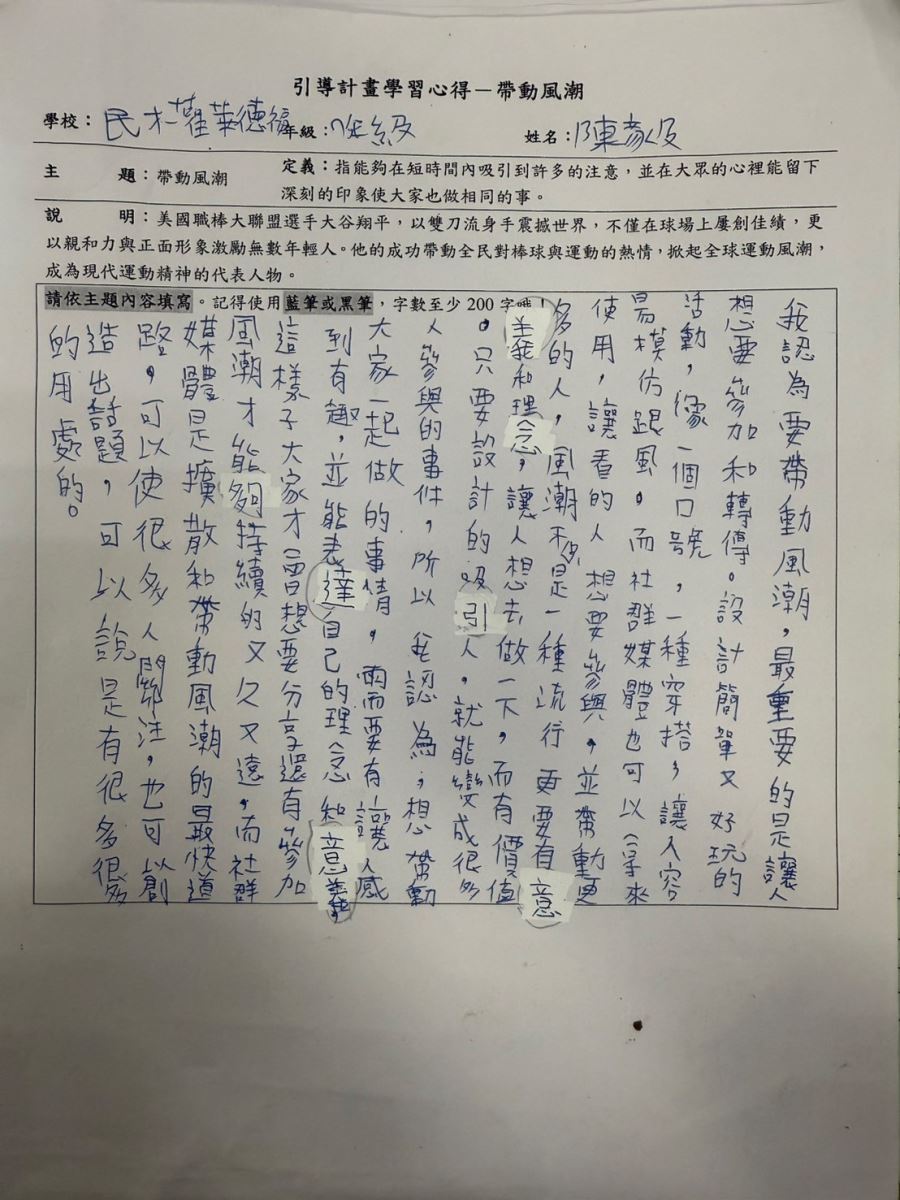 引導計畫學習心得－帶動風潮
學校：民才華德福 年級： 級 姓名：陳彥伋
主　題：帶動風潮　定義：指能夠在短時間內吸引到許多的注意，並在大眾的心裡能留下
深刻的印象使大家也做相同的事。
說　明：美國職棒大聯盟選手大谷翔平，以雙刀流身手震撼世界，不僅在球場上屢創佳績，更
以親和力與正面形象激勵無數年輕人。他的成功帶動全民對棒球與運動的熱情，掀起全球運動風潮，
成為現代運動精神的代表人物。
請依主題內容填寫。記得使用藍筆或黑筆，字數至少 200 字哦！
我認為要帶動風潮，最重要的是讓人
想要參加和轉傳。設計簡單又好玩的
活動，像一個口號，一種穿搭，讓人容
易模仿跟風。而社群媒體也可以拿來
使用，讓看的人想要參與，並帶動更
多的人，風潮不是一種流行更要有意
義和理念，讓人想去做一下，而有價值
。只要設計的吸引人，就能變成很多
人參與的事件，所以我認為，想帶動
大家一起做的事情，需要有讓人感
到有趣，並能表達自己的理念和意義，
這樣子大家才會想要分享還有參加
風潮才能夠持續的又久又遠，而社群
媒體是擴散和帶動風潮的最快道
路，可以使很多人關注，也可以創
造出話題，可以說是有很多很多
的用處的。